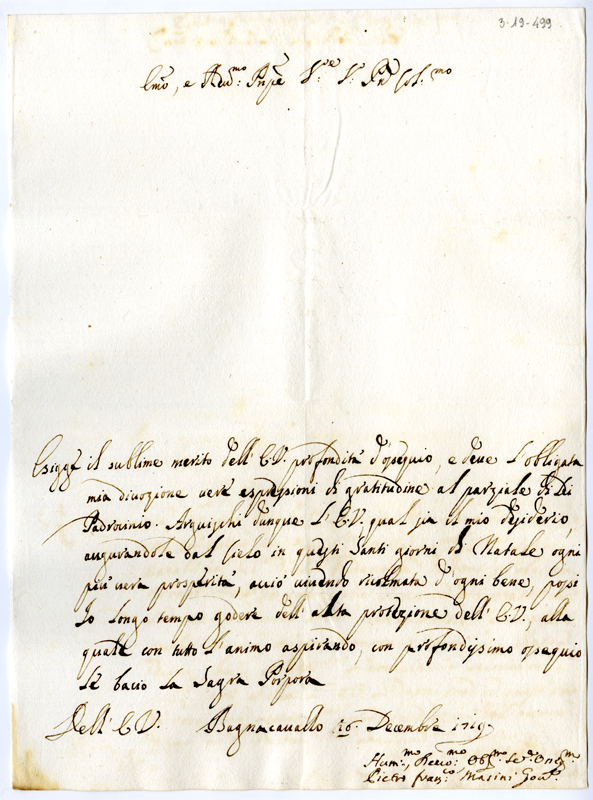 3-19-499
Em̃o, e Reu:mo Pñpe S.re S.r Pñ Col:mo
Esigge il sublime merito dell' E.V. profondità d'ossequio, e deue l'obligata
mia diuozione vere espressioni di gratitudine al parziale di Lei
Padrocinio. Arguischi dunque l'E.V. qual sia il mio desiderio,
augurandole dal Cielo in questi Santi giorni di Natale ogni
più uera prosperità, acciò uiuendo ricolmata d'ogni bene, possi
Io longo tempo godere dell'alta protezione dell'E.V., alla
quale con tutto l'animo aspirando, con profondissimo ossequio
le bacio la Sagra Porpora
Dell'E.V. Bagnacauallo 16. Decembre 1719.
Hum:mo, Deuo:mo Obl:mo Se:re
Pietro Fran:co Masini Gou:re